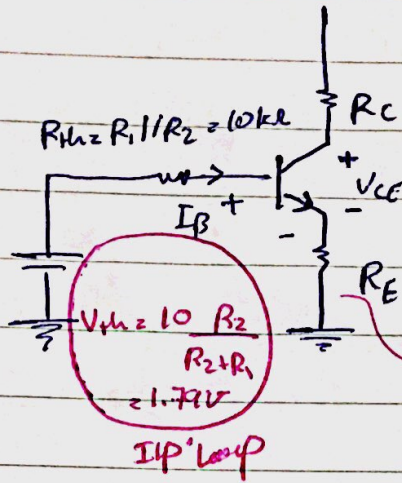 RC
Rth = R1 // R2 = 10kΩ
+
VCE
-
IB
+
-
RE
Vth = 10 R2
R2+R1
= 1.79V
I/P Loop